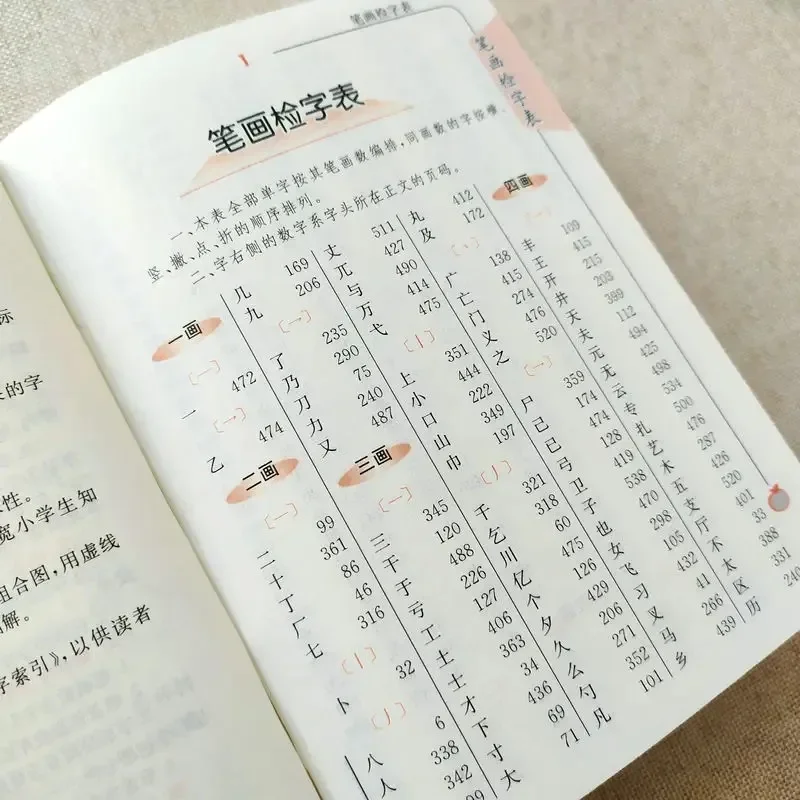 标
的字
性。
宽小学生知
组合图,用虚线
图解。
字索引》,以供读者
笔画检字表
1
笔画检字表
笔画检字表
一、本表全部单字按其笔画数编排,同画数的字按横、
竖、撇、点、折的顺序排列。
二、字右侧的数字系字头所在正文的页码。
一画
〔一〕
一 472
〔乛〕
乙 474
二画
〔一〕
二 99
十 361
丁 86
厂 46
七 316
〔丨〕
卜 32
〔丿〕
八 6
人 338
342
几 169
九 206
〔乛〕
了 235
乃 290
刀 75
力 240
又 487
三画
〔一〕
三 345
干 120
于 488
亏 226
工 127
土 406
士 363
才 34
下 436
寸 69
大 71
丈 511
兀 427
与 490
万 414
弋 475
〔丨〕
上 351
小 444
口 222
山 349
巾 197
〔丿〕
千 321
乞 318
川 60
亿 475
个 126
夕 429
久 206
么 271
勺 352
凡 101
丸 412
及 172
〔丶〕
广 138
亡 415
门 274
义 476
之 520
〔乛〕
尸 359
己 174
已 474
弓 128
卫 419
子 538
也 470
女 298
飞 105
习 432
叉 41
马 266
乡 439
四画
〔一〕
丰 109
王 415
开 215
井 203
天 399
夫 112
元 494
无 425
云 498
专 534
扎 500
艺 476
木 287
五 426
支 520
厅 401
不 33
太 388
区 331
历 240